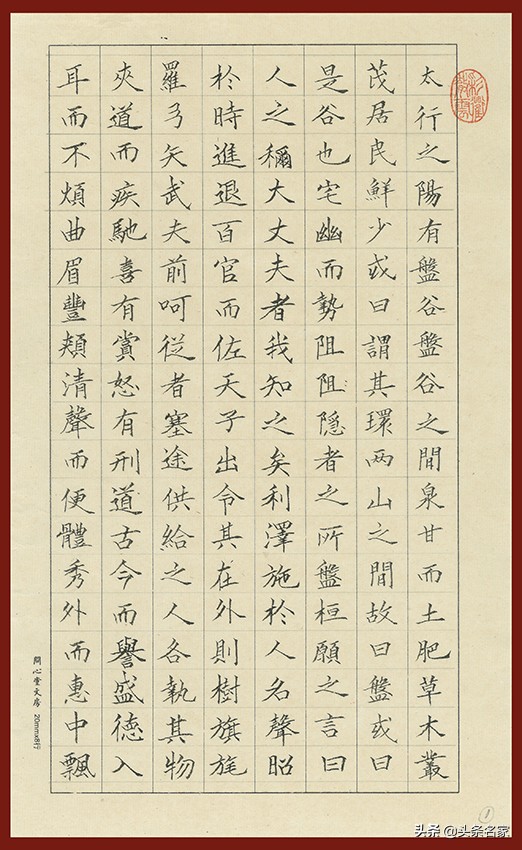 太行之陽有盤谷盤谷之間泉甘而土肥草木叢
茂居民鮮少或曰謂其環兩山之間故曰盤或曰
是谷也宅幽而勢阻阻隱者之所盤桓願之言曰
人之稱大丈夫者我知之矣利澤施於人名聲昭
於時進退百官而佐天子出令其在外則樹旗旄
羅弓矢武夫前呵從者塞途供給之人各執其物
夾道而疾馳喜有賞怒有刑道古今而譽盛德入
耳而不煩曲眉豐頰清聲而便體秀外而惠中飄
心堂文房 20mmx8行
1
头条 @头条名家